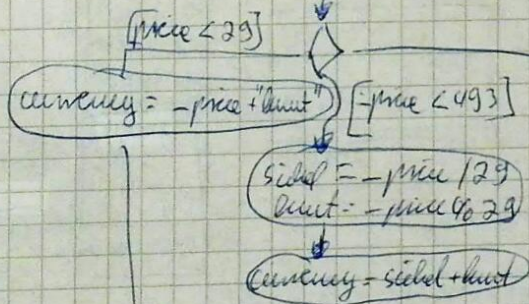 [price < 29]
currency = _price + "knut"
[_price < 493]
sickel = _price / 29
knut = _price % 29
currency = sickel + knut